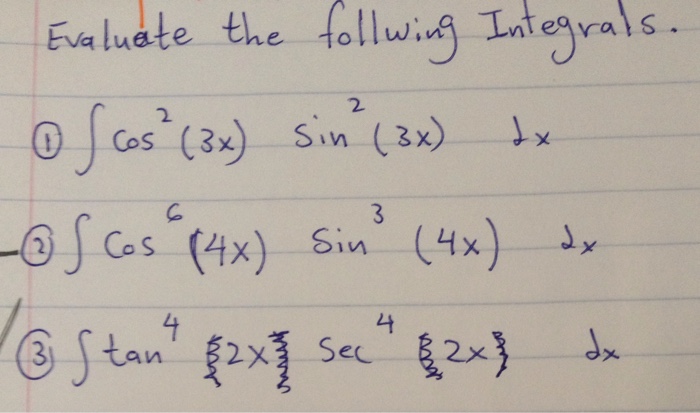 Evaluate the follwing Integrals.
① ∫ cos²(3x) sin²(3x) dx
② ∫ cos⁶(4x) sin³(4x) dx
③ ∫ tan⁴{2x} sec⁴{2x} dx